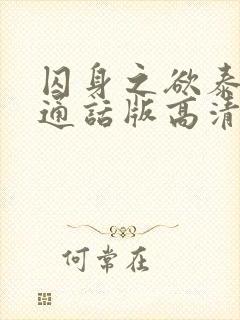 囚身之欲泰
通話版高清
何常在